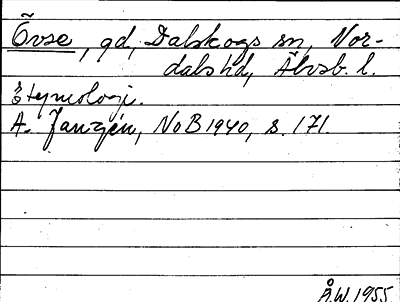 Õvse, gd, Dalskogs sn, Nor-
dals hd, Älvsb. l.
Etymologi.
A. Janzén, NoB 1940, s. 171.
Å.W. 1955.